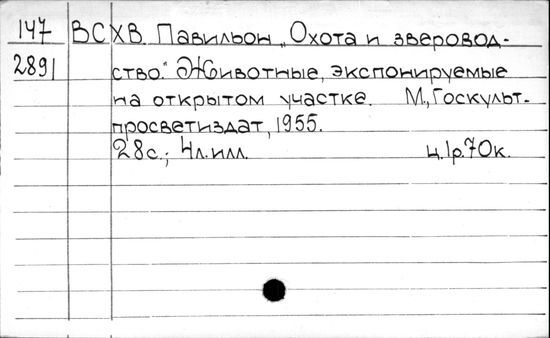 147 ВСХВ. Павильон „Охота и зверовод-
2891 ство." Животные, экспонируемые
на открытом участке. М., Госкульт-
просветиздат, 1955.
28с.; 4л.илл. ц.1р.70к.